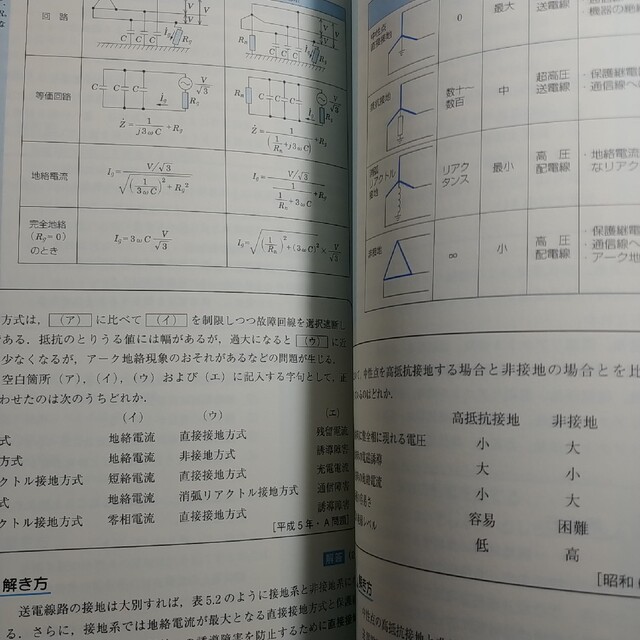 回 路
V
V
V
V
C C C
R₉
Rₙ
C C C
等価回路
C C C
V/√3
R₉
Ż = 1/(j3ωC) + R₉
Rₙ
C C C
V/√3
地絡電流
I₉ = (V/√3) / √((1/3ωC)² + R₉²)
完全地絡
(R₉=0)
のとき
I₉ = 3ωC V/√3
I₉ = √((1/Rₙ)² + (3ωC)²) × V/√3
方式は，(ア) に比べて (イ) を制限しつつ故障回線を選択遮断し
である．抵抗のとりうる値には幅があるが，過大になると (ウ) に近
少なくなるが，アーク地絡現象のおそれがあるなどの問題が生じる．
空白箇所（ア），（イ），（ウ）および（エ）に記入する字句として，正
わせたのは次のうちどれか．
（イ） （ウ） （エ）
式 地絡電流 直接接地方式 残留電流
方式 地絡電流 非接地方式 誘導障害
クトル接地方式 短絡電流 直接接地方式 充電電流
式 地絡電流 消弧リアクトル接地方式 通信障害
クトル接地方式 零相電流 直接接地方式 誘導障害
［平成５年・Ａ問題］
解答
解き方
送電線路の接地は大別すれば，表5.2のように接地系と非接地系に
る．さらに，接地系では地絡電流が最大となる直接接地方式と
誘導障害を防止するために直接接
直接接地
0 最大 送電線 ・機器の絶縁
抵抗接地
数十～
数百
中
超高圧
送電線
・保護継電
・通信線へ
消弧
リアクトル
接地
リアク
タンス
最小
高 圧
配電線
・地絡電流
なリアク
非接地
∞ 小
高 圧
配電線
・保護継電
・通信線へ
・アーク地
，中性点を高抵抗接地する場合と非接地の場合とを比
いるのはどれか．
高抵抗接地 非接地
健全相に現れる電圧 小 大
電磁誘導 大 小
小 大
容易 困難
レベル 低 高
［昭和
解き方